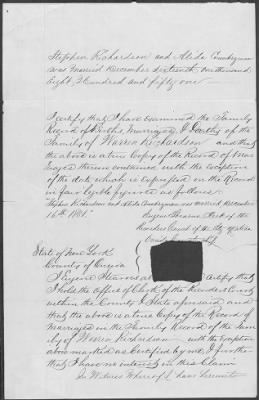 Stephen Richardson and Alida Countryman
was married December sixteenth one thousand
Eight Hundred and fifty one.
I certify that I have examined the Family
Record of Births, marriages, & Deaths of the
family of Warren Richardson and that
the above is a true Copy of the Record of Mar
riages therein contained with the exception
of the date which is expressed in the Record
in fair legible figures as follows
"Stephen Richardson and Alida Countryman was married December
16th 1851."
Eugene Stearns Clerk of the
Recorders Court of the City of Utica
State of New York
County of Oneida
I Eugene Stearns certify that
I hold the office of Clerk of the Recorders Court
within the County & State aforesaid and
that the above is a true Copy of the Record of
marriages in the Family Record of the Fam
ily of Warren Richardson with the exception
above marked as Certified by me & I further
that I have no interest in this Claim
In Witness Whereof I have hereunto